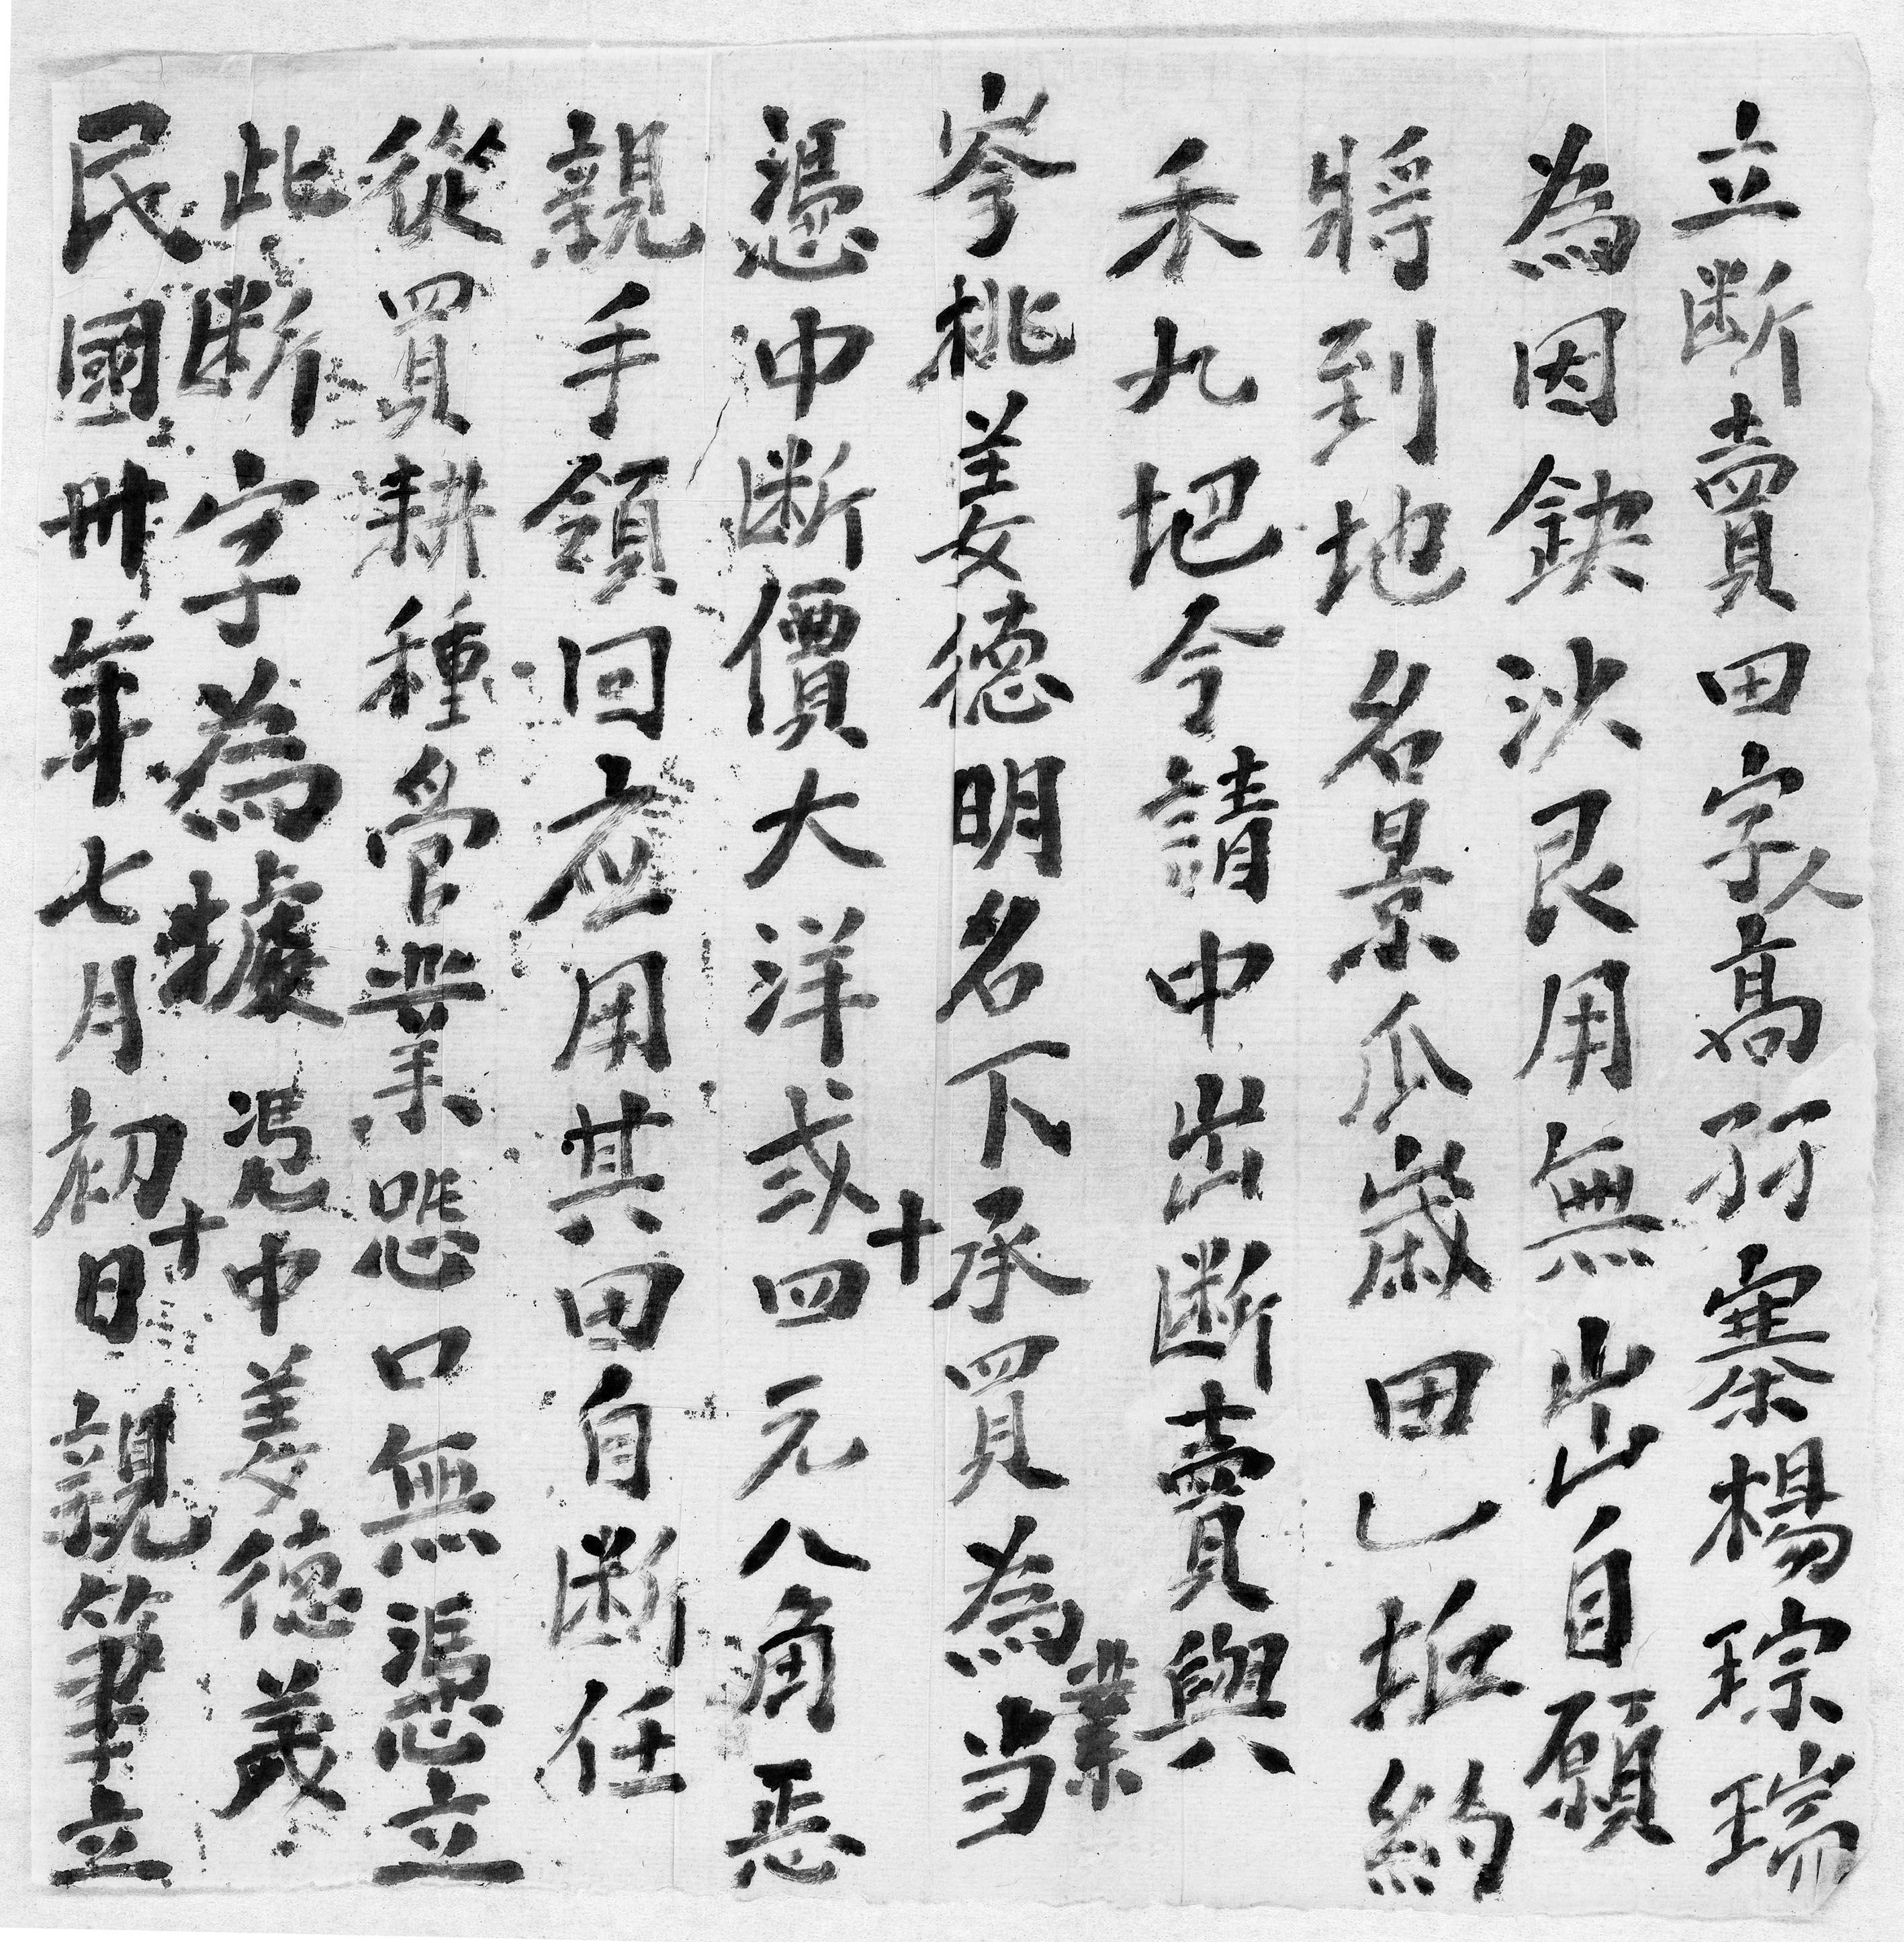 立断賣田字人髙孖寨楊琮瑞
為因鈌沙艮用無出自願
將到地名景瓜歳田乚坵約
禾九把今請中出断賣與
岑桃姜德明名下承買為業当
憑中断價大洋弍十四元八角恶
親手領回应用其田自断任
從買耕種管業恐口無憑立
此断字為據 憑中姜德義
民國卅年七月初十日親筆立